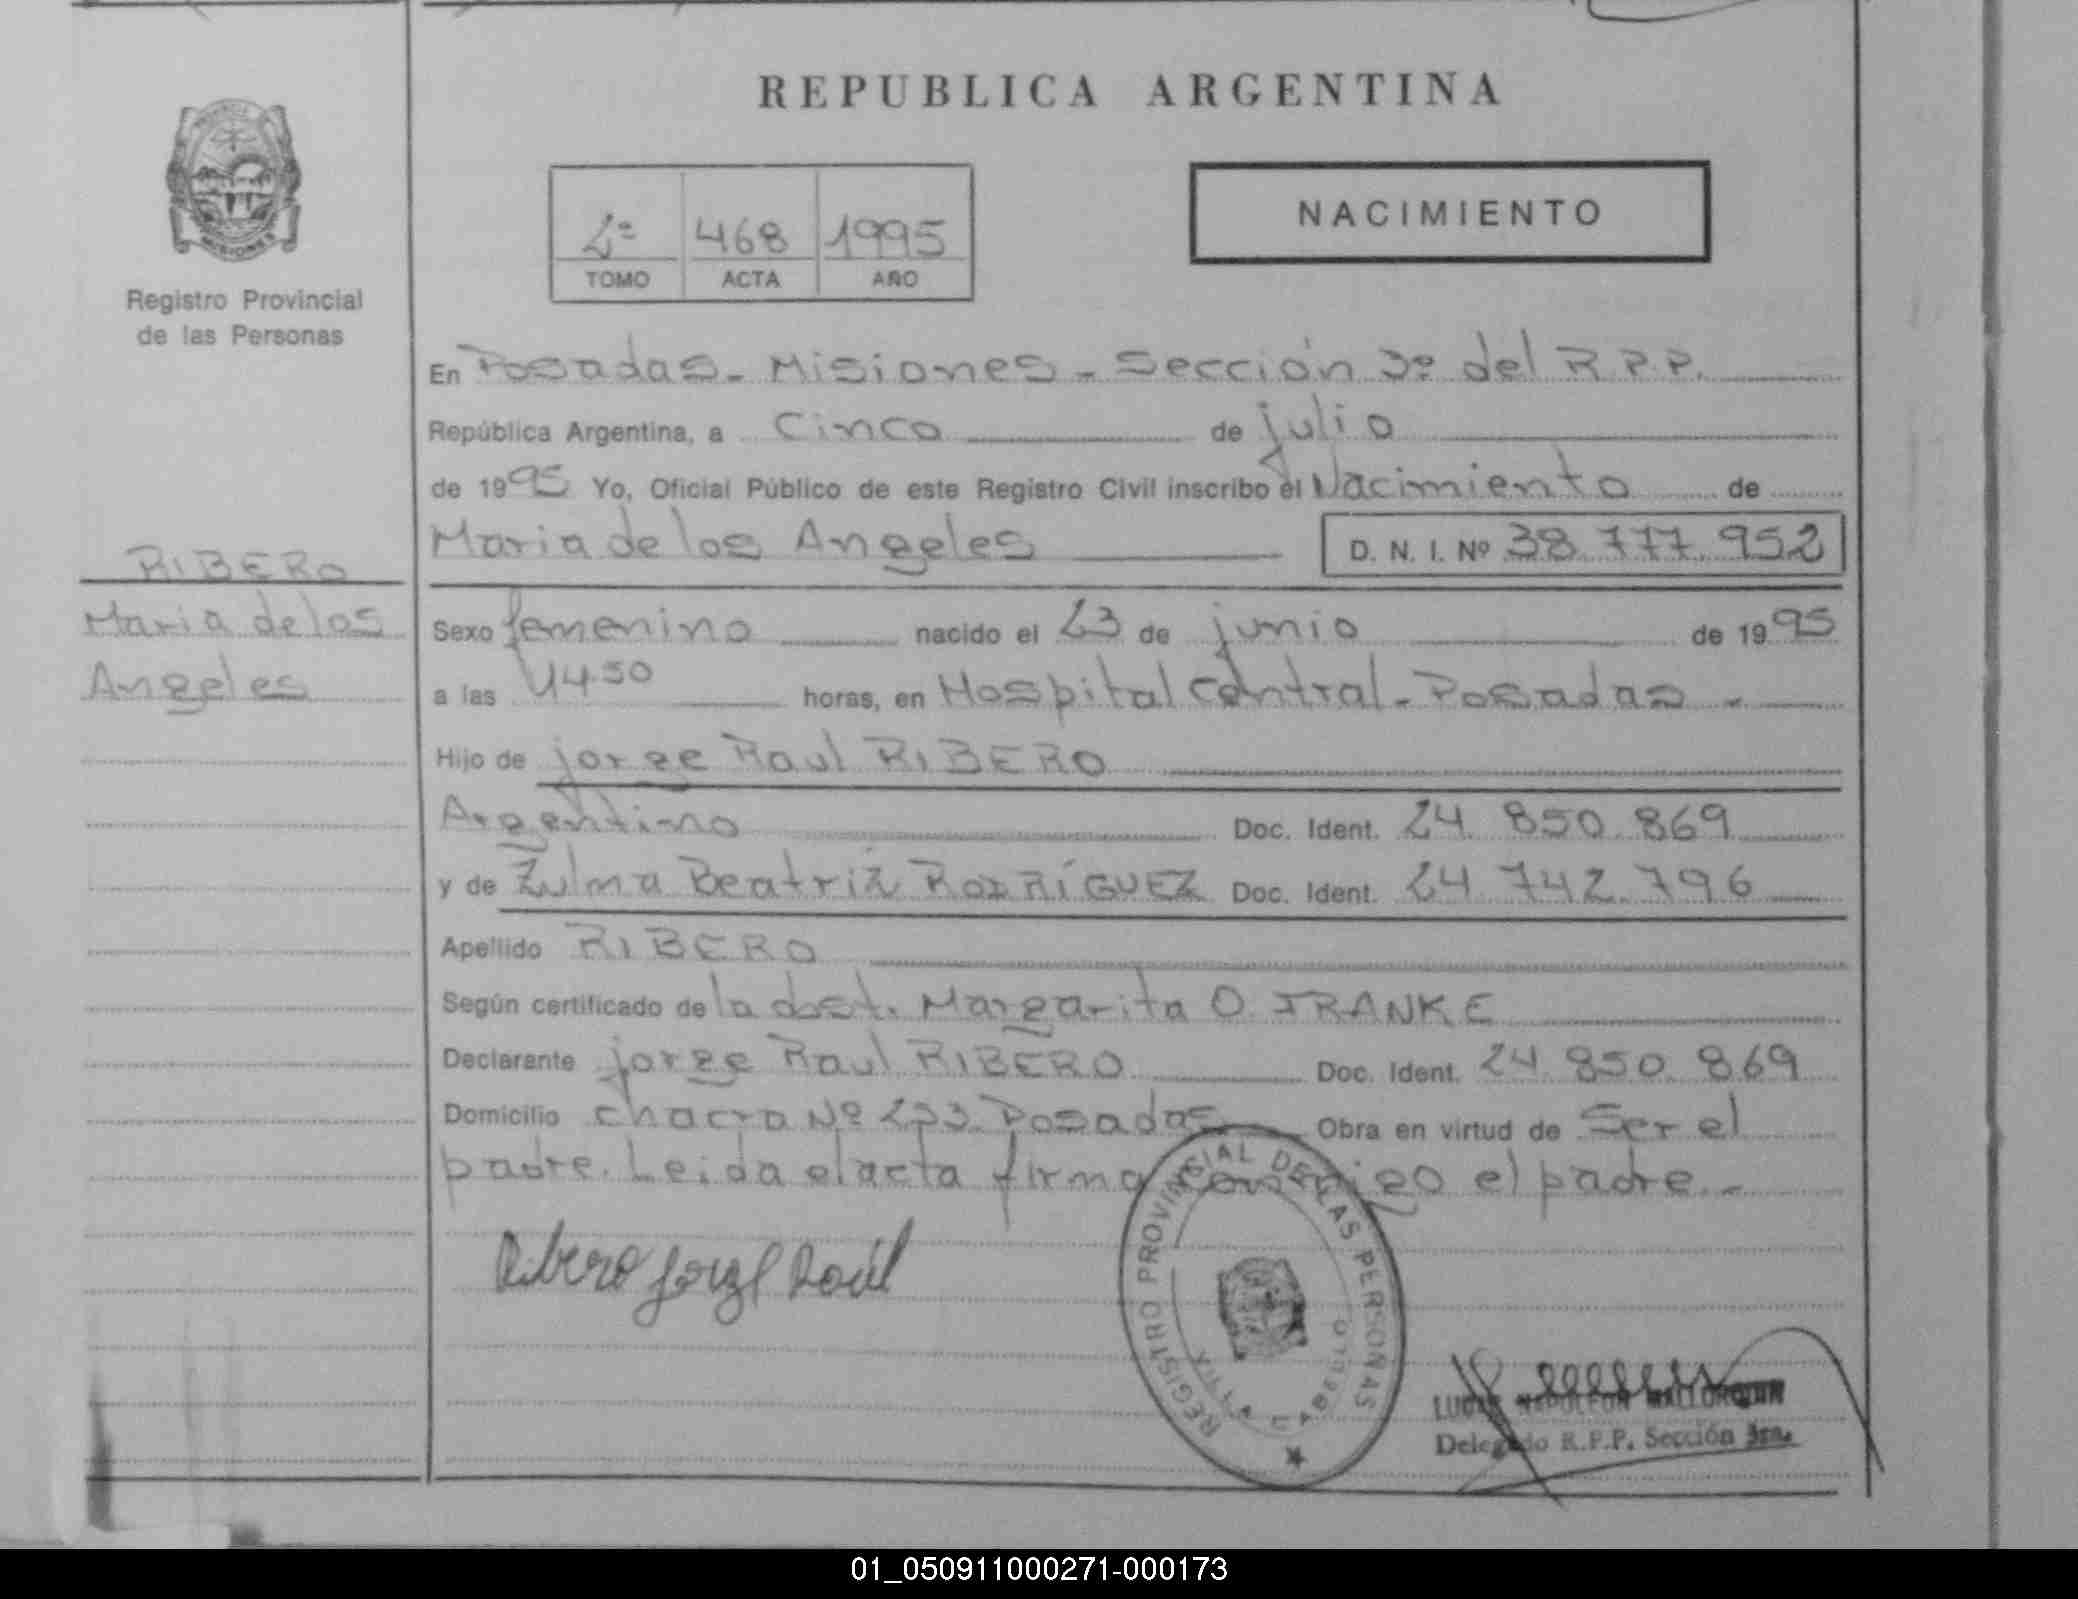 REPUBLICA ARGENTINA
NACIMIENTO
2º 468 1995
TOMO ACTA AÑO
Registro Provincial
de las Personas
En Posadas - Misiones - Sección 3º del R.P.P.
República Argentina, a Cinco de julio
de 1995 Yo, Oficial Público de este Registro Civil inscribo el Nacimiento de
Maria de los Angeles D. N. I. Nº 38.777.952
RIBERO
Maria de los
Angeles
Sexo femenino nacido el 23 de junio de 1995
a las horas, en Hospital Central - Posadas -
Hijo de jorge Raul RIBERO
Argentino Doc. Ident. 24.850.869
y de Zulma Beatriz RODRÍGUEZ Doc. Ident. 24.742.796
Apellido RIBERO
Según certificado de la obst. Margarita O. FRANKE
Declarante jorge Raul RIBERO Doc. Ident. 24.850.869
Domicilio chacra Nº Posadas Obra en virtud de Ser el
padre. Leida el acta firma conmigo el padre.-
Ribero Jorge Raúl
REGISTRO PROVINCIAL DE LAS PERSONAS
NAPOLEON MALLORQUIN
Delegado R.P.P. Sección 3ra.
01_050911000271-000173